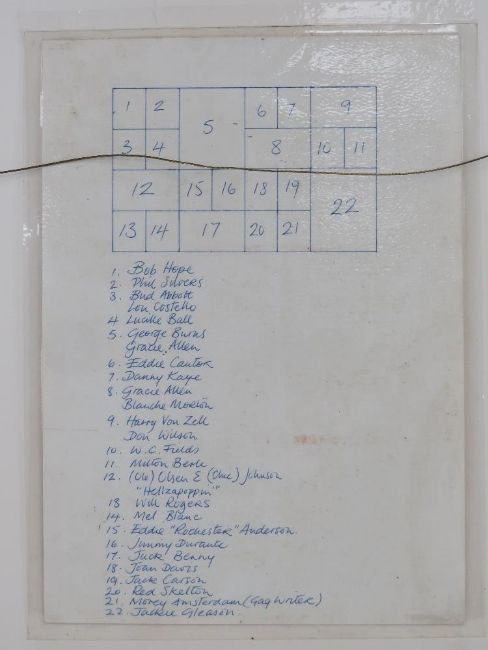 1 2 5 6 7 9
3 4 8 10 11
12 15 16 18 19 22
13 14 17 20 21
1. Bob Hope
2. Phil Silvers
3. Bud Abbott
Lou Costello
4 Lucille Ball
5. George Burns
Gracie Allen
6. Eddie Cantor
7. Danny Kaye
8. Gracie Allen
Blanche Morton
9. Harry Von Zell
Don Wilson
10. W.C. Fields
11. Milton Berle
12. (Ole) Olsen & (Chic) Johnson
"Hellzapoppin"
13 Will Rogers
14. Mel Blanc
15. Eddie "Rochester" Anderson.
16. Jimmy Durante
17. Jack Benny
18. Joan Davis
19. Jack Carson
20. Red Skelton
21. Morey Amsterdam (Gag Writer)
22. Jackie Gleason.